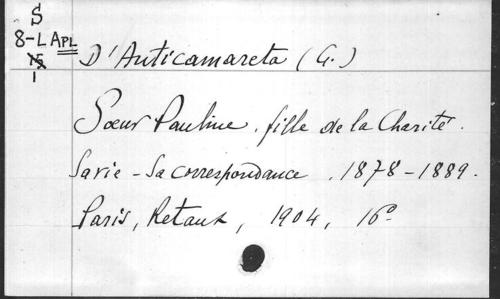 S
8-L APL
15
1
D'Anticamareta (G.)
Sœur Pauline, fille de la Charité.
Sa vie - Sa correspondance, 1878-1889.
Paris, Retaux, 1904, 16º